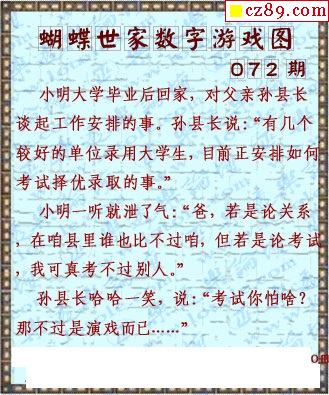 cz89.com
蝴蝶世家数字游戏图
072期
小明大学毕业后回家，对父亲孙县长
谈起工作安排的事。孙县长说：“有几个
较好的单位录用大学生，目前正安排如何
考试择优录取的事。”
小明一听就泄了气：“爸，若是论关系
，在咱县里谁也比不过咱，但若是论考试
，我可真考不过别人。”
孙县长哈哈一笑，说：“考试你怕啥？
那不过是演戏而已……”